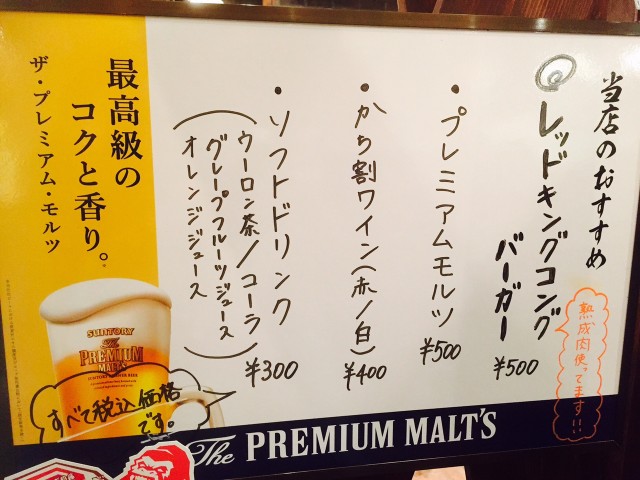 当店のおすすめ
◎レッドキングコング
バーガー ¥500
熟成肉使ってます!!
・プレミアムモルツ ¥500
・かち割ワイン(赤/白) ¥400
・ソフトドリンク ¥300
(ウーロン茶/コーラ
グレープフルーツジュース
オレンジジュース)
最高級の
コクと香り。
ザ・プレミアム・モルツ
SUNTORY
The
PREMIUM
MALT'S
すべて税込価格
です。
The PREMIUM MALT'S